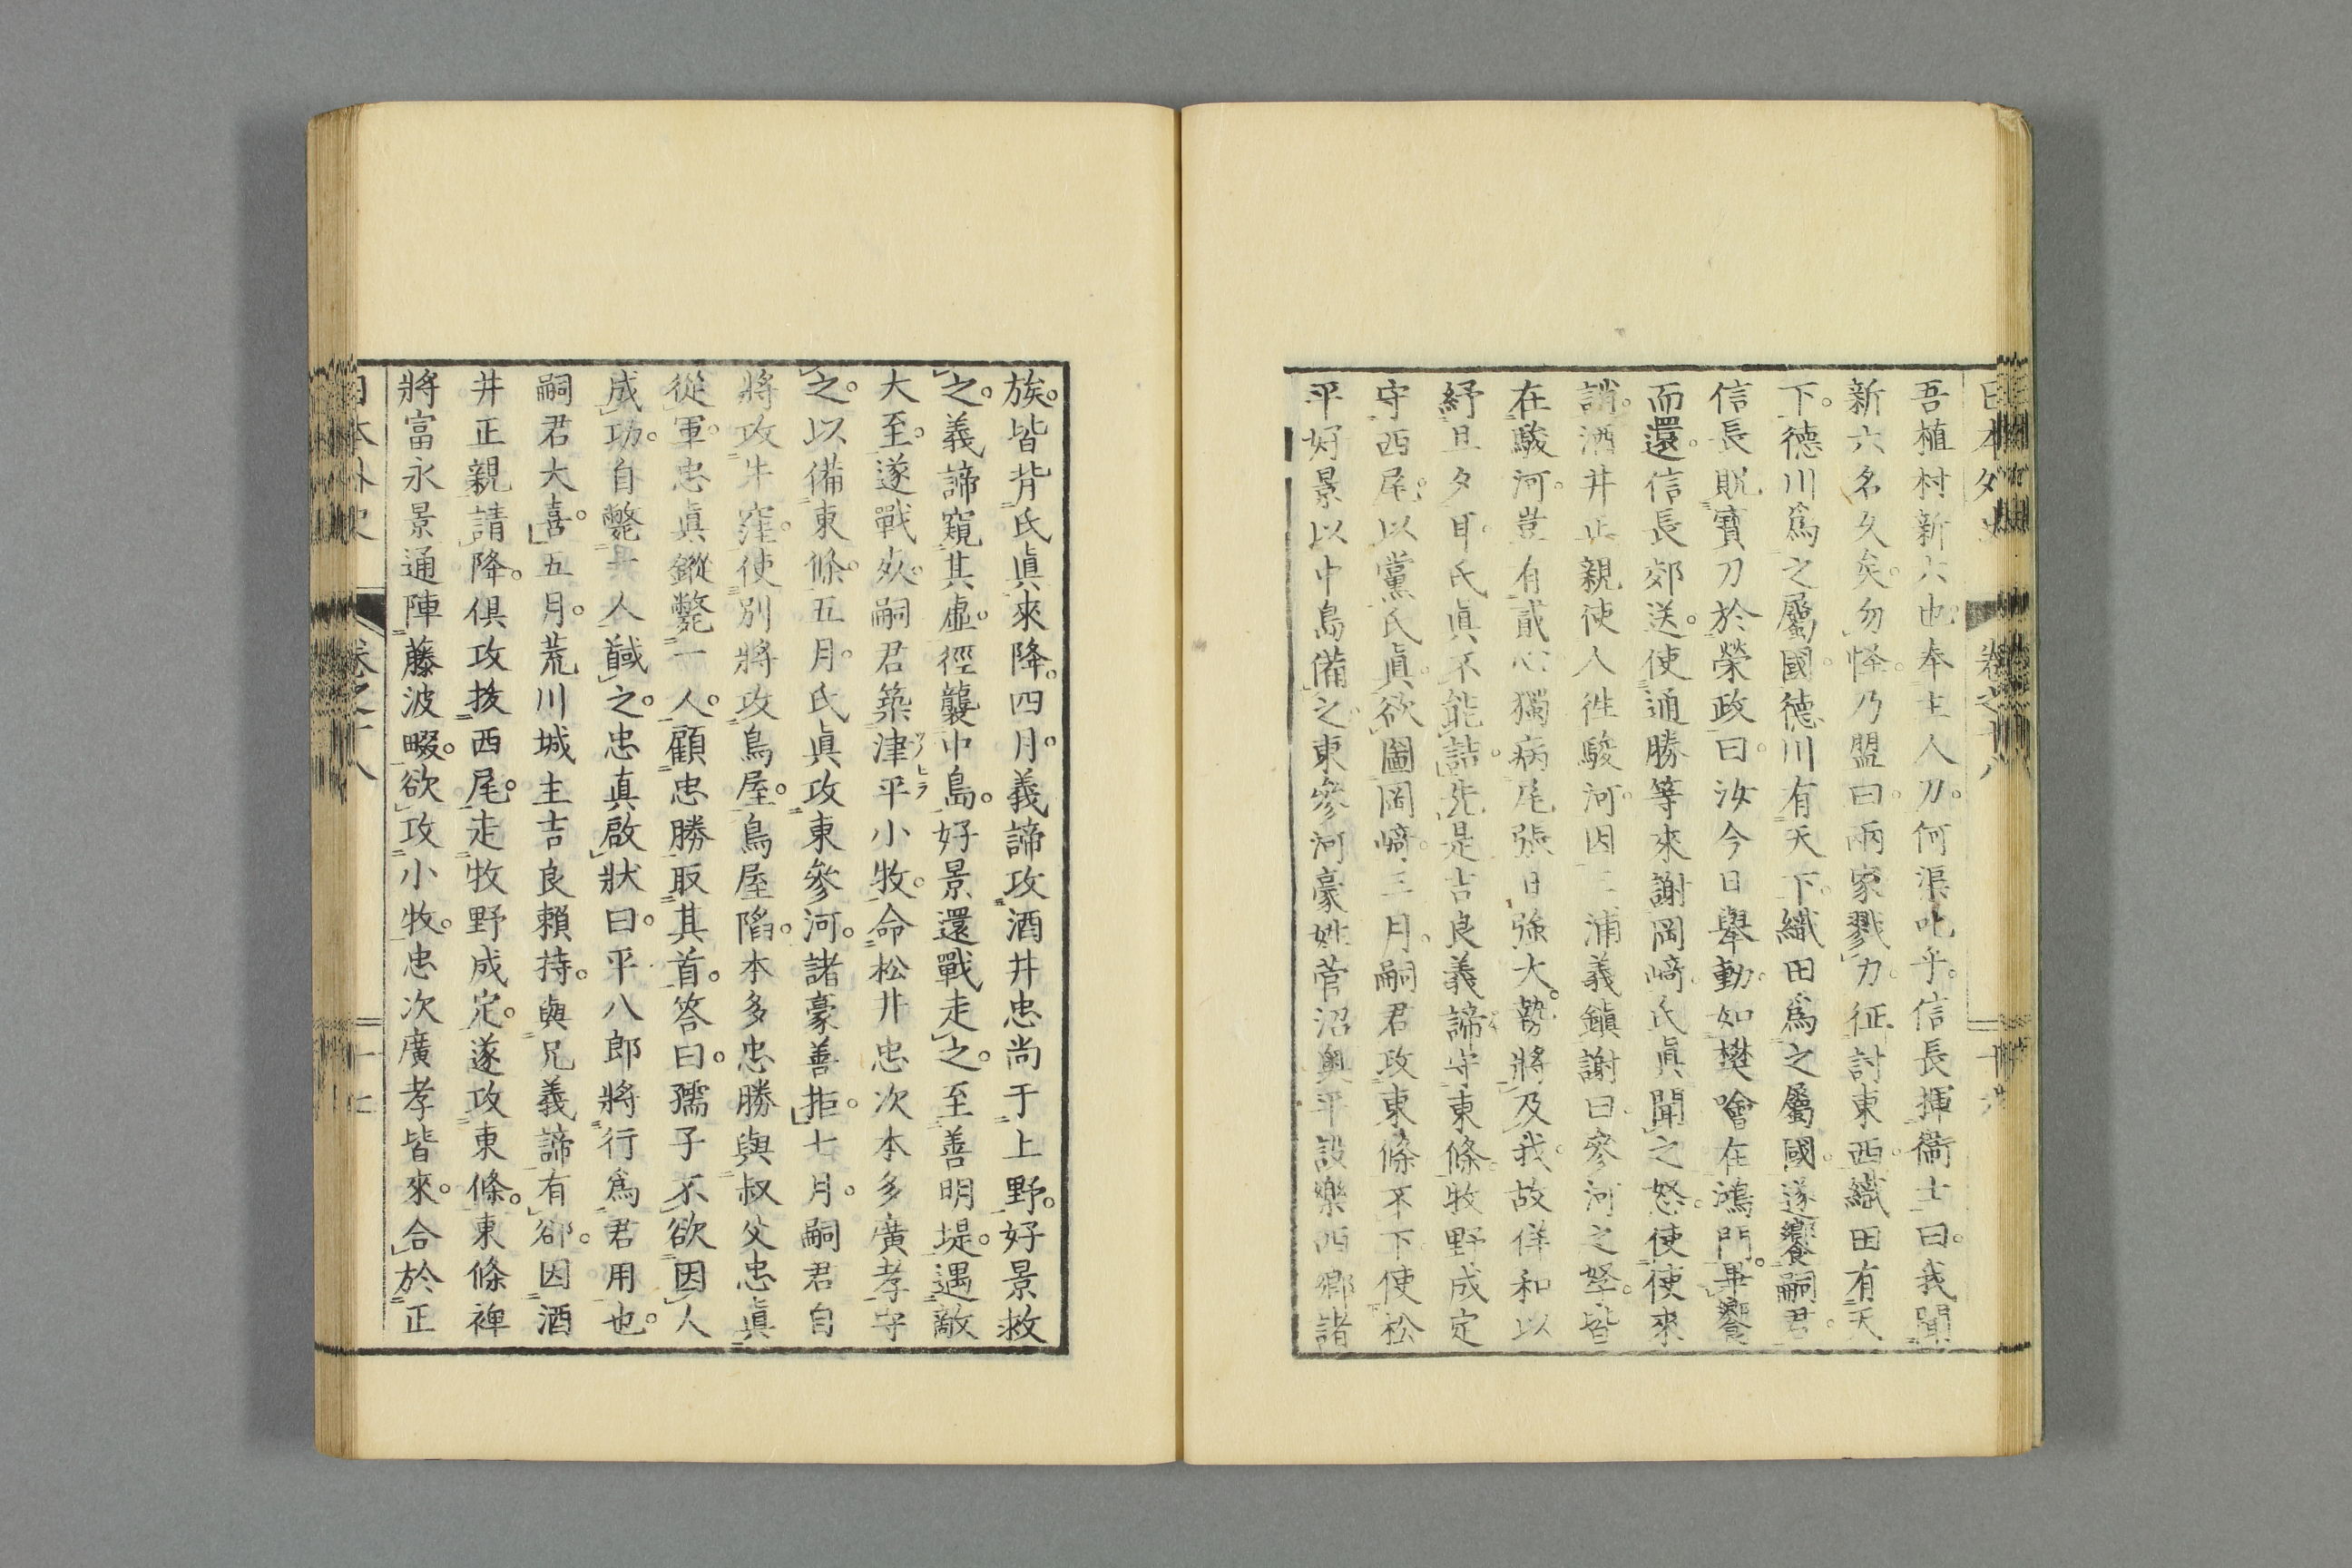 吾植村新六也。奉主人刀。何渠叱乎。信長揮衞士曰。我聞
新六名久矣。勿怪。乃盟曰。兩家戮力。征討東西。織田有天
下。德川爲之屬國。德川有天下。織田爲之屬國。遂饗嗣君。
信長貺寶刀於榮政曰。汝今日擧動。如樊噲在鴻門。畢饗
而還。信長郊送。使通勝等來謝岡﨑。氏眞聞之怒。使使來
誚。酒井正親使人徃駿河。因三浦義鎭謝曰。參河之孥。皆
在駿河。豈有貳心。獨病尾張日強大。勢將及我。故佯和以
紓旦夕耳。氏眞不能詰。先是吉良義諦守東條。牧野成定
守西尾。以黨氏眞。欲圖岡﨑。三月。嗣君攻東條不下。使松
平好景以中島備之。東參河豪姓菅沼奥平設樂西鄉諸
族。皆背氏眞來降。四月。義諦攻酒井忠尚于上野。好景救
之。義諦窺其虛。徑襲中島。好景還戰走之。至善明堤。遇敵
大至。遂戰死。嗣君築津平小牧。命松井忠次本多廣孝守
ツノヒラ
之。以備東條。五月。氏眞攻東參河。諸豪善拒。七月。嗣君自
將攻牛窪。使別將攻鳥屋。鳥屋陷。本多忠勝與叔父忠眞
從軍。忠眞鏦斃一人。顧忠勝取其首。答曰。孺子不欲因人
成功。自斃其人馘之。忠真啟狀曰。平八郎將行爲君用也。
嗣君大喜。五月。荒川城主吉良賴持。與兄義諦有郤。因酒
井正親請降。俱攻拔西尾。走牧野成定。遂攻東條。東條裨
將富永景通陣藤波畷。欲攻小牧。忠次廣孝皆來。合於正
日本外史
卷之十八
十七